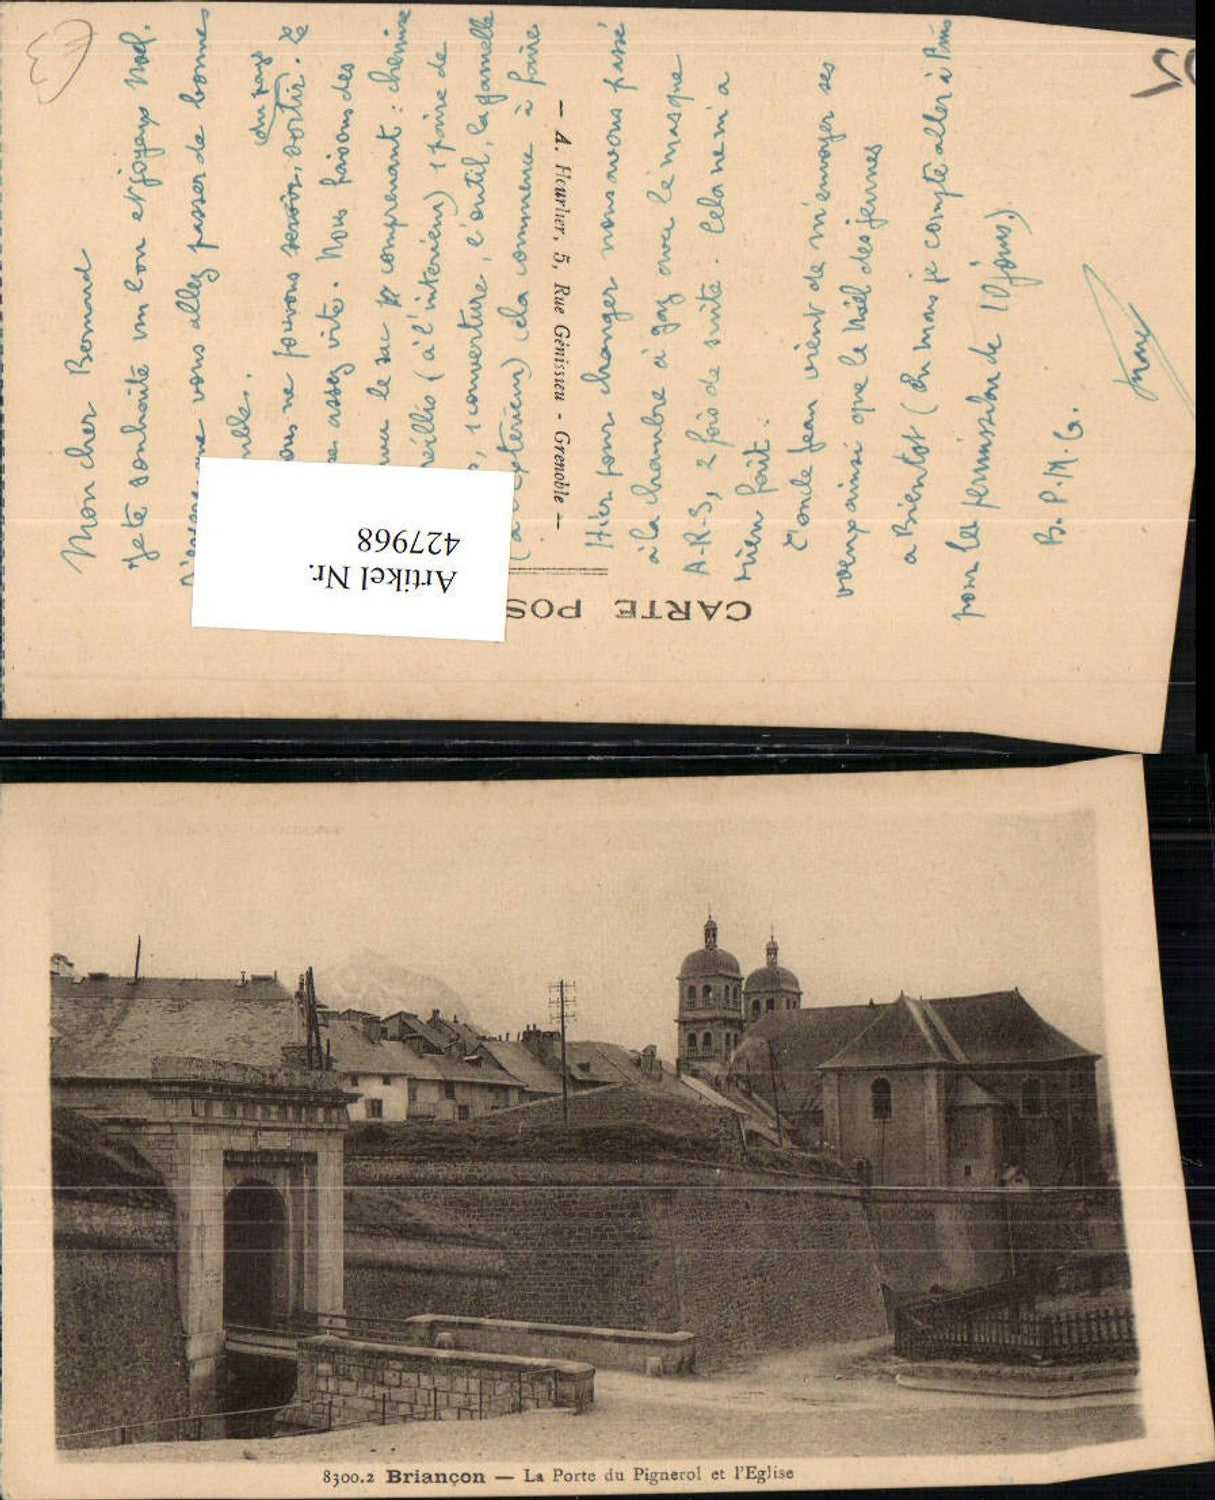 Mon cher Bernard
Je te souhaite un bon et joyeux Noël.
que vous allez passer de bonnes
(du pays
ous ne pouvons sortir. Le
assez vite. Nous faisons des
le sac comprenant : chemise
(à l'intérieur) 1 paire de
, 1 couverture, l'outil, la gamelle
(à l'extérieur) cela commence à faire
— A. Fleurlier, 5, Rue Génissieu - Grenoble —
Hier pour changer nous avons passé
à la chambre à gaz avec le masque
A-R-S, 2 fois de suite. Cela ne m'a
rien fait.
L'oncle Jean vient de m'envoyer ses
voeux ainsi que le Noël des jeunes
à Bientot (En mars je compte aller à
pour les permission de 10 jours).
B. P. M. G.
CARTE POS
Artikel Nr.
427968
8300.2 Briançon — La Porte du Pignerol et l'Eglise